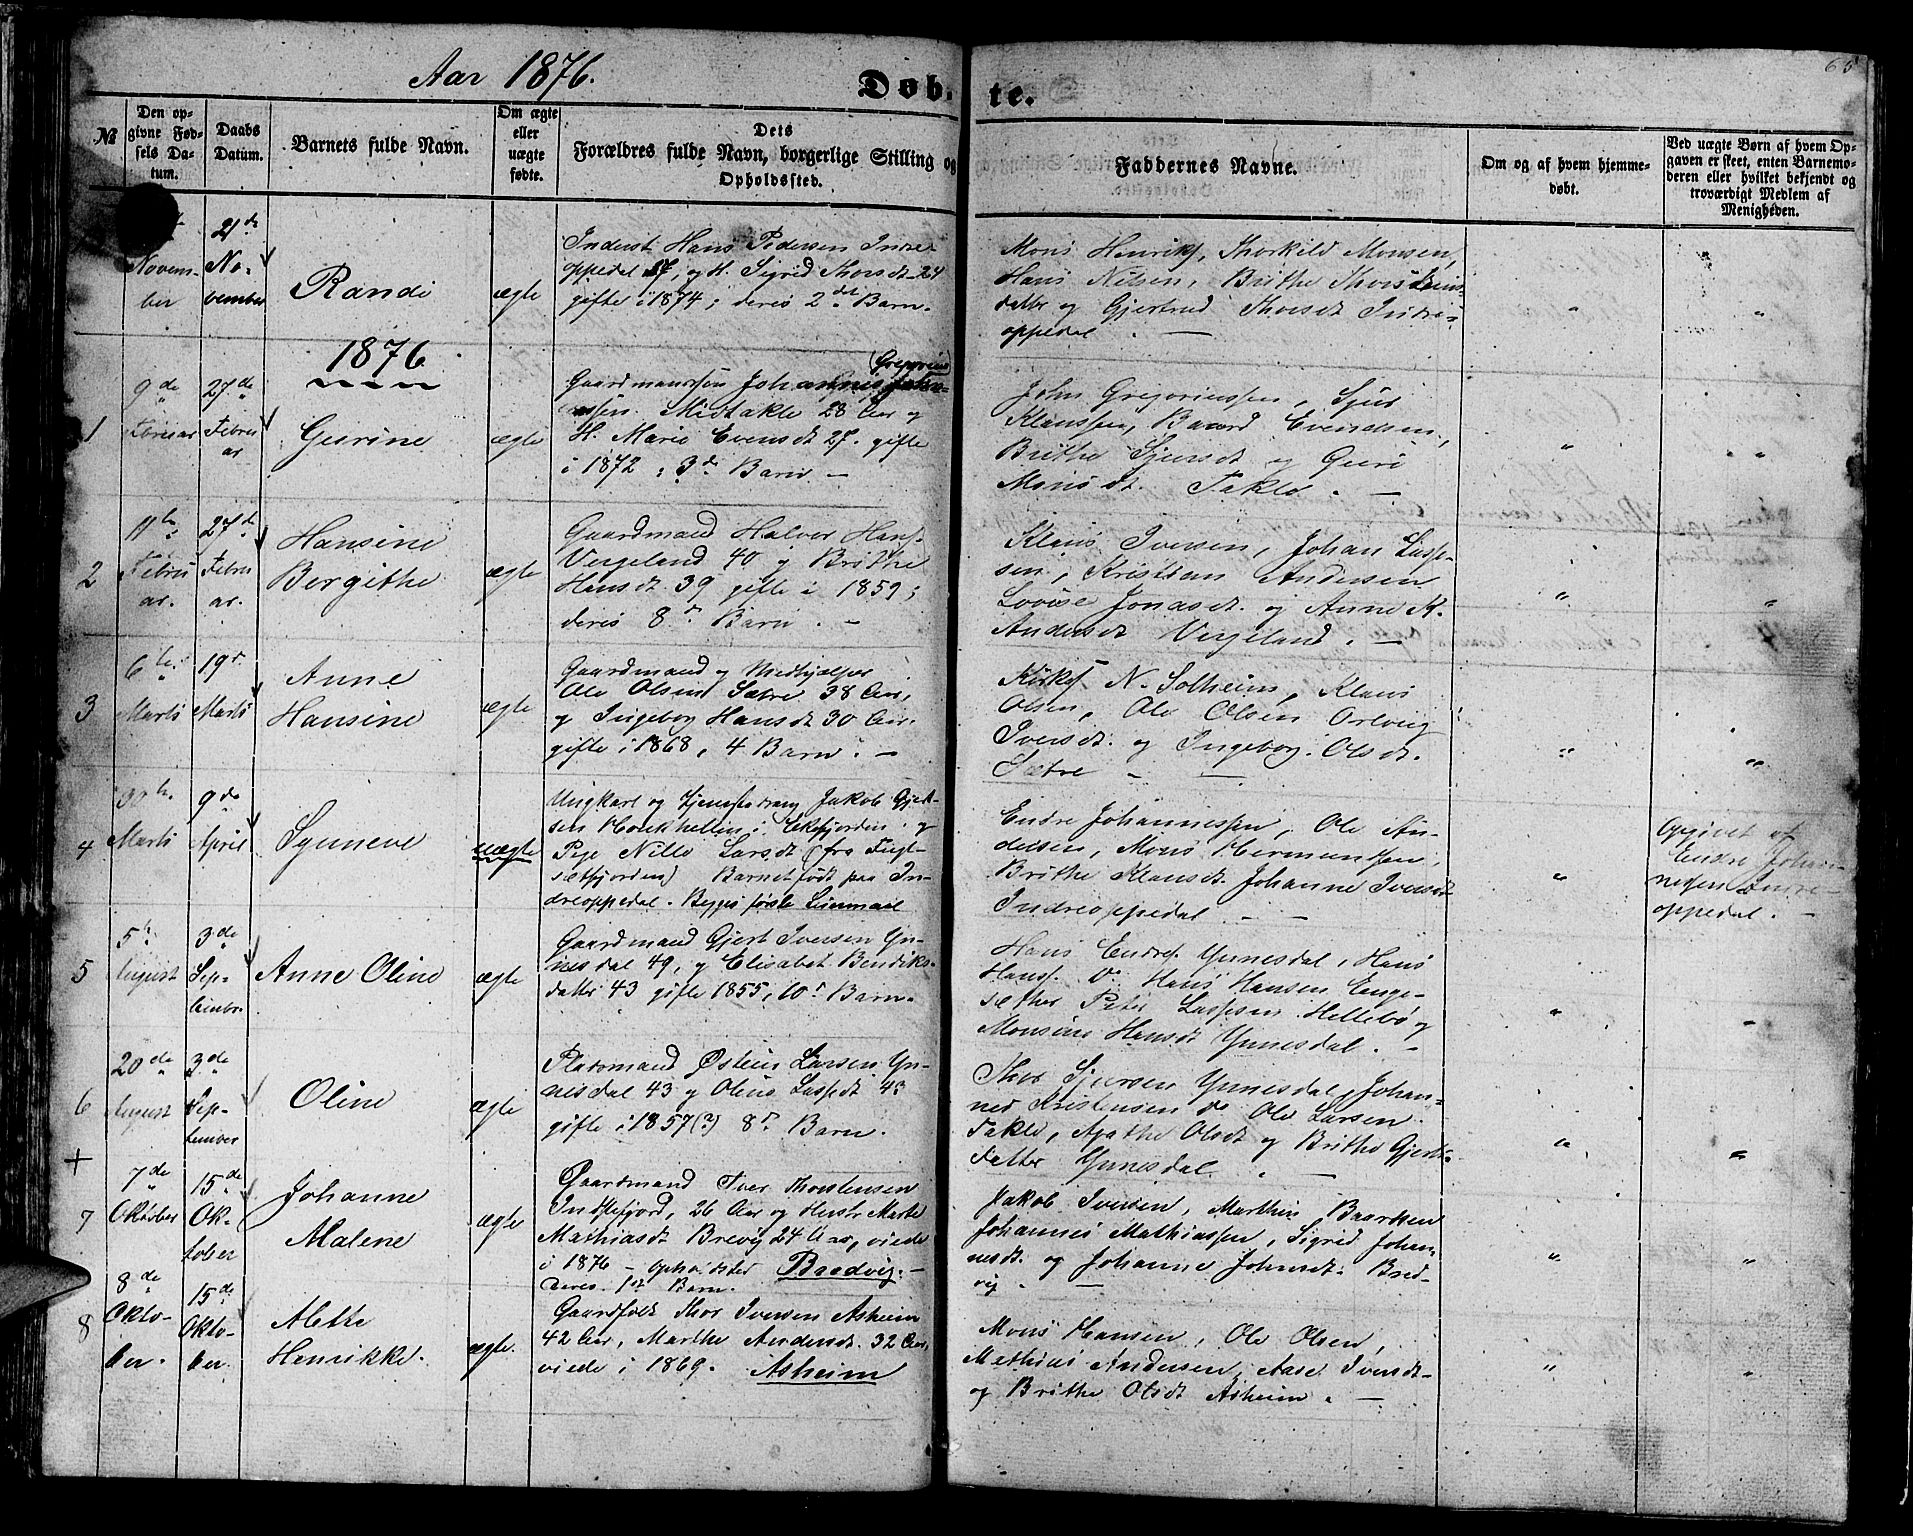 Aar 1876.
Døb-
te.
65
№
Den op-
givne Fød-
sels Da-
tum.
Daabs
Datum.
Barnets fulde Navn.
Om ægte
eller
uægte
fødte.
Dets
Forældres fulde Navn, borgerlige Stilling og
Opholdssted.
Faddernes Navne.
Om og af hvem hjemme-
døbt.
Ved uægte Børn af hvem Op-
gaven er skeet, enten Barnemo-
deren eller hvilket bekjendt og
troværdigt Medlem af
Menigheden.
Novem-
ber
21de
No-
vember
Randi
ægte
Inderst Hans Pedersen Indre
oppedal 27, og H. Sigrid Thorsdt 24
gifte i 1874; deres 2det Barn.
Mons Henriks. Thorkild Monsen,
Hans Nilsen, Brithe Thorsteins-
datter og Gjertrud Thorsdt Indre-
oppedal. —
1876
1
9de
Februar
27de
Febru
ar
Gurine
ægte
(Gregorius)
Gaardmandssøn Johannes
Midtakle 28 Aar og
H. Marie Evensdt 27. gifte
i 1872; 3de Barn —
John Gregoriussen, Sjur
Klaussen, Baard Evensen,
Brithe Sjursdt og Guri
Monsdt. Takle. —
2
11te
Febru
ar.
27de
Febru
ar.
Hansine
Bergithe
ægte
Gaardmand Halvor Hans.
Vergeland 40 og Brithe
Hansdt 39 gifte i 1859;
deres 8de Barn. —
Klaus Iversen, Johan Lasse-
sen, Kristian Andersen
Lovise Jonasdt. og Anne K.
Andersdt Vergeland. —
3
6te
Marts
19de
Marts
Anne
Hansine
ægte
Gaardmand og Medhjælper
Ole Olsen Sætre 38 Aar,
og Ingeborg Hansdt 30 Aar.
gifte i 1868, 4 Barn. —
Kirkes. N. Solheim, Klaus
Olsen, Ole Olsen
Iversdt. og Ingeborg Olsdt.
Sætre —
4
30te
Marts
9de
April
Synneve
uægte
Ungkarl og Tjenestedreng Jakob Gjert-
sen i Eikefjorden og
Pige Nille Larsdt (fra Fugl-
sætfjorden) Barnet født paa In-
dreoppedal. Begges første Leiermaal
Endre Johannessen, Ole An-
dersen, Mons Hermundsen,
Brithe Klausdt. Johanne Iversdt
Indreoppedal —
Opgivet af
Endre Johan-
nesen Indre-
oppedal. —
5
5te
August
3de
Sep-
tember
Anne Oline
ægte
Gaardmand Gjert Iversen Yn-
nesdal 49, og Elisabet Bendiks-
datter 43 gifte 1855, 10de Barn.
Hans Endres. Ynnesdal, Hans
Hanss. Do. Hans Hansen Enge-
sæther Peter Lassesen Hellebø og
Monsine Hansdt Ynnesdal. —
6
20de
August
3de
Sep-
tember
Oline
ægte
Pladsmand Østein Larsen Yn-
nesdal 43 og Oline Lassedt 43
gifte i 1857(?) 8de Barn.
Thor Sjursen Ynnesdal, Johan-
nes Kristensen do Ole Larsen
Takle, Agathe Olsdt og Brithe Gjerts-
datter Ynnesdal. —
+
7
7de
Oktober
15de
Ok-
tober
Johanne
Malene
ægte
Gaardmand Iver Thorstensen
Indrefjord, 26 Aar og Hustr. Marte
Mathiasdt Brevig 24 Aar, viede
i 1876 — opholdsted Bredvig. —
deres 1ste Barn.
Jakob Iversen, Marthin Baardsen
Johannes Mathiassen, Sigrid Johan-
nesdt. og Johanne Johnsdt. Bred-
vig —
8
8de
Okto-
ber.
15de
Okto-
ber.
Alethe
Henrikke.
ægte.
Gaardfolk Thor Iversen Asheim
42 Aar, Marthe Andersdt. 32 Aar,
viede i 1869. Asheim
Mons Hansen, Ole Olsen,
Mathias Andersen, Aase Iversdt.
og Brithe Olsdt Asheim. —